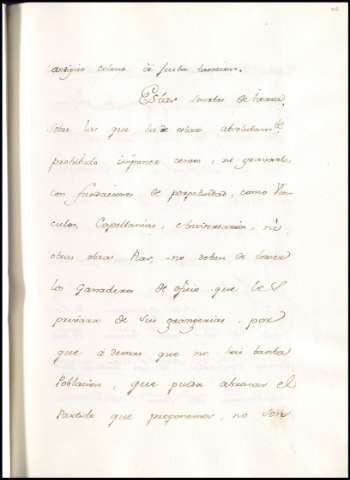 antiguo colono de justa tasacion.
Estas suertes de tierra,
sobre las que ha de estar absolutam.te
prohibido imponer censos, ni gravarlas
con fundaciones de perpetuidad, como Vin
culos, Capellanias, Aniversarios, ni
otras obras Pias, no deben de
los Ganaderos de oficio que les
privaran de sus grangerias, por
que ademas que no hai tanta
Poblacion, que pueda abrazar el
Partido que proponemos, no son